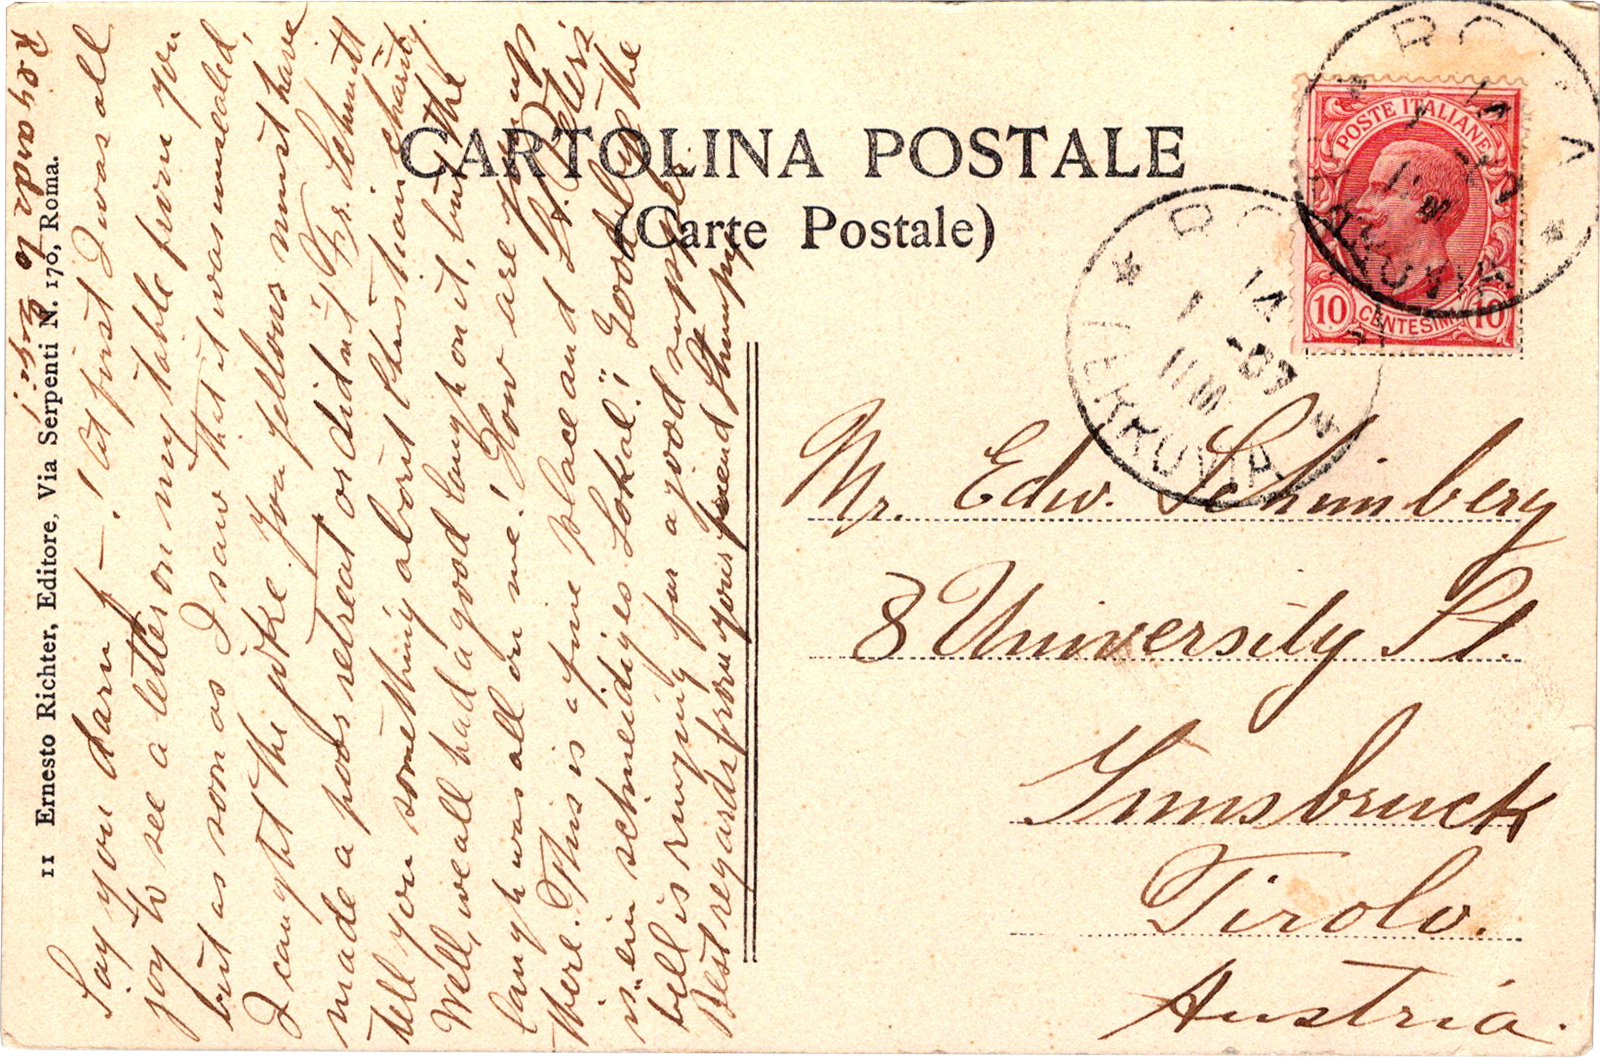 CARTOLINA POSTALE
(Carte Postale)
POSTE ITALIANE
10 CENTESIMI 10
ROMA
FERROVIA
ROMA
FERROVIA
11 Ernesto Richter, Editore, Via Serpenti N. 170, Roma.
Regards to
Say you darn —! At first I was all
joy to see a letter on my table from you
but as soon as I saw that it was unsealed,
I caught the joke. You fellows must have
made a poor retreat or didn't Fr. Schmitt
tell you something about Christian charity
Well, we all had a good laugh on it, but the
laugh was all on me! How are things up
there. This is a fine place and St. Peters
is "ein schneidiges Lokal!" Goodbye the
bell is ringing for a good supper.
Best regards from your friend Stumpy
Mr. Edw. Schimberg
8 University St.
Innsbruck
Tirolo.
Austria.